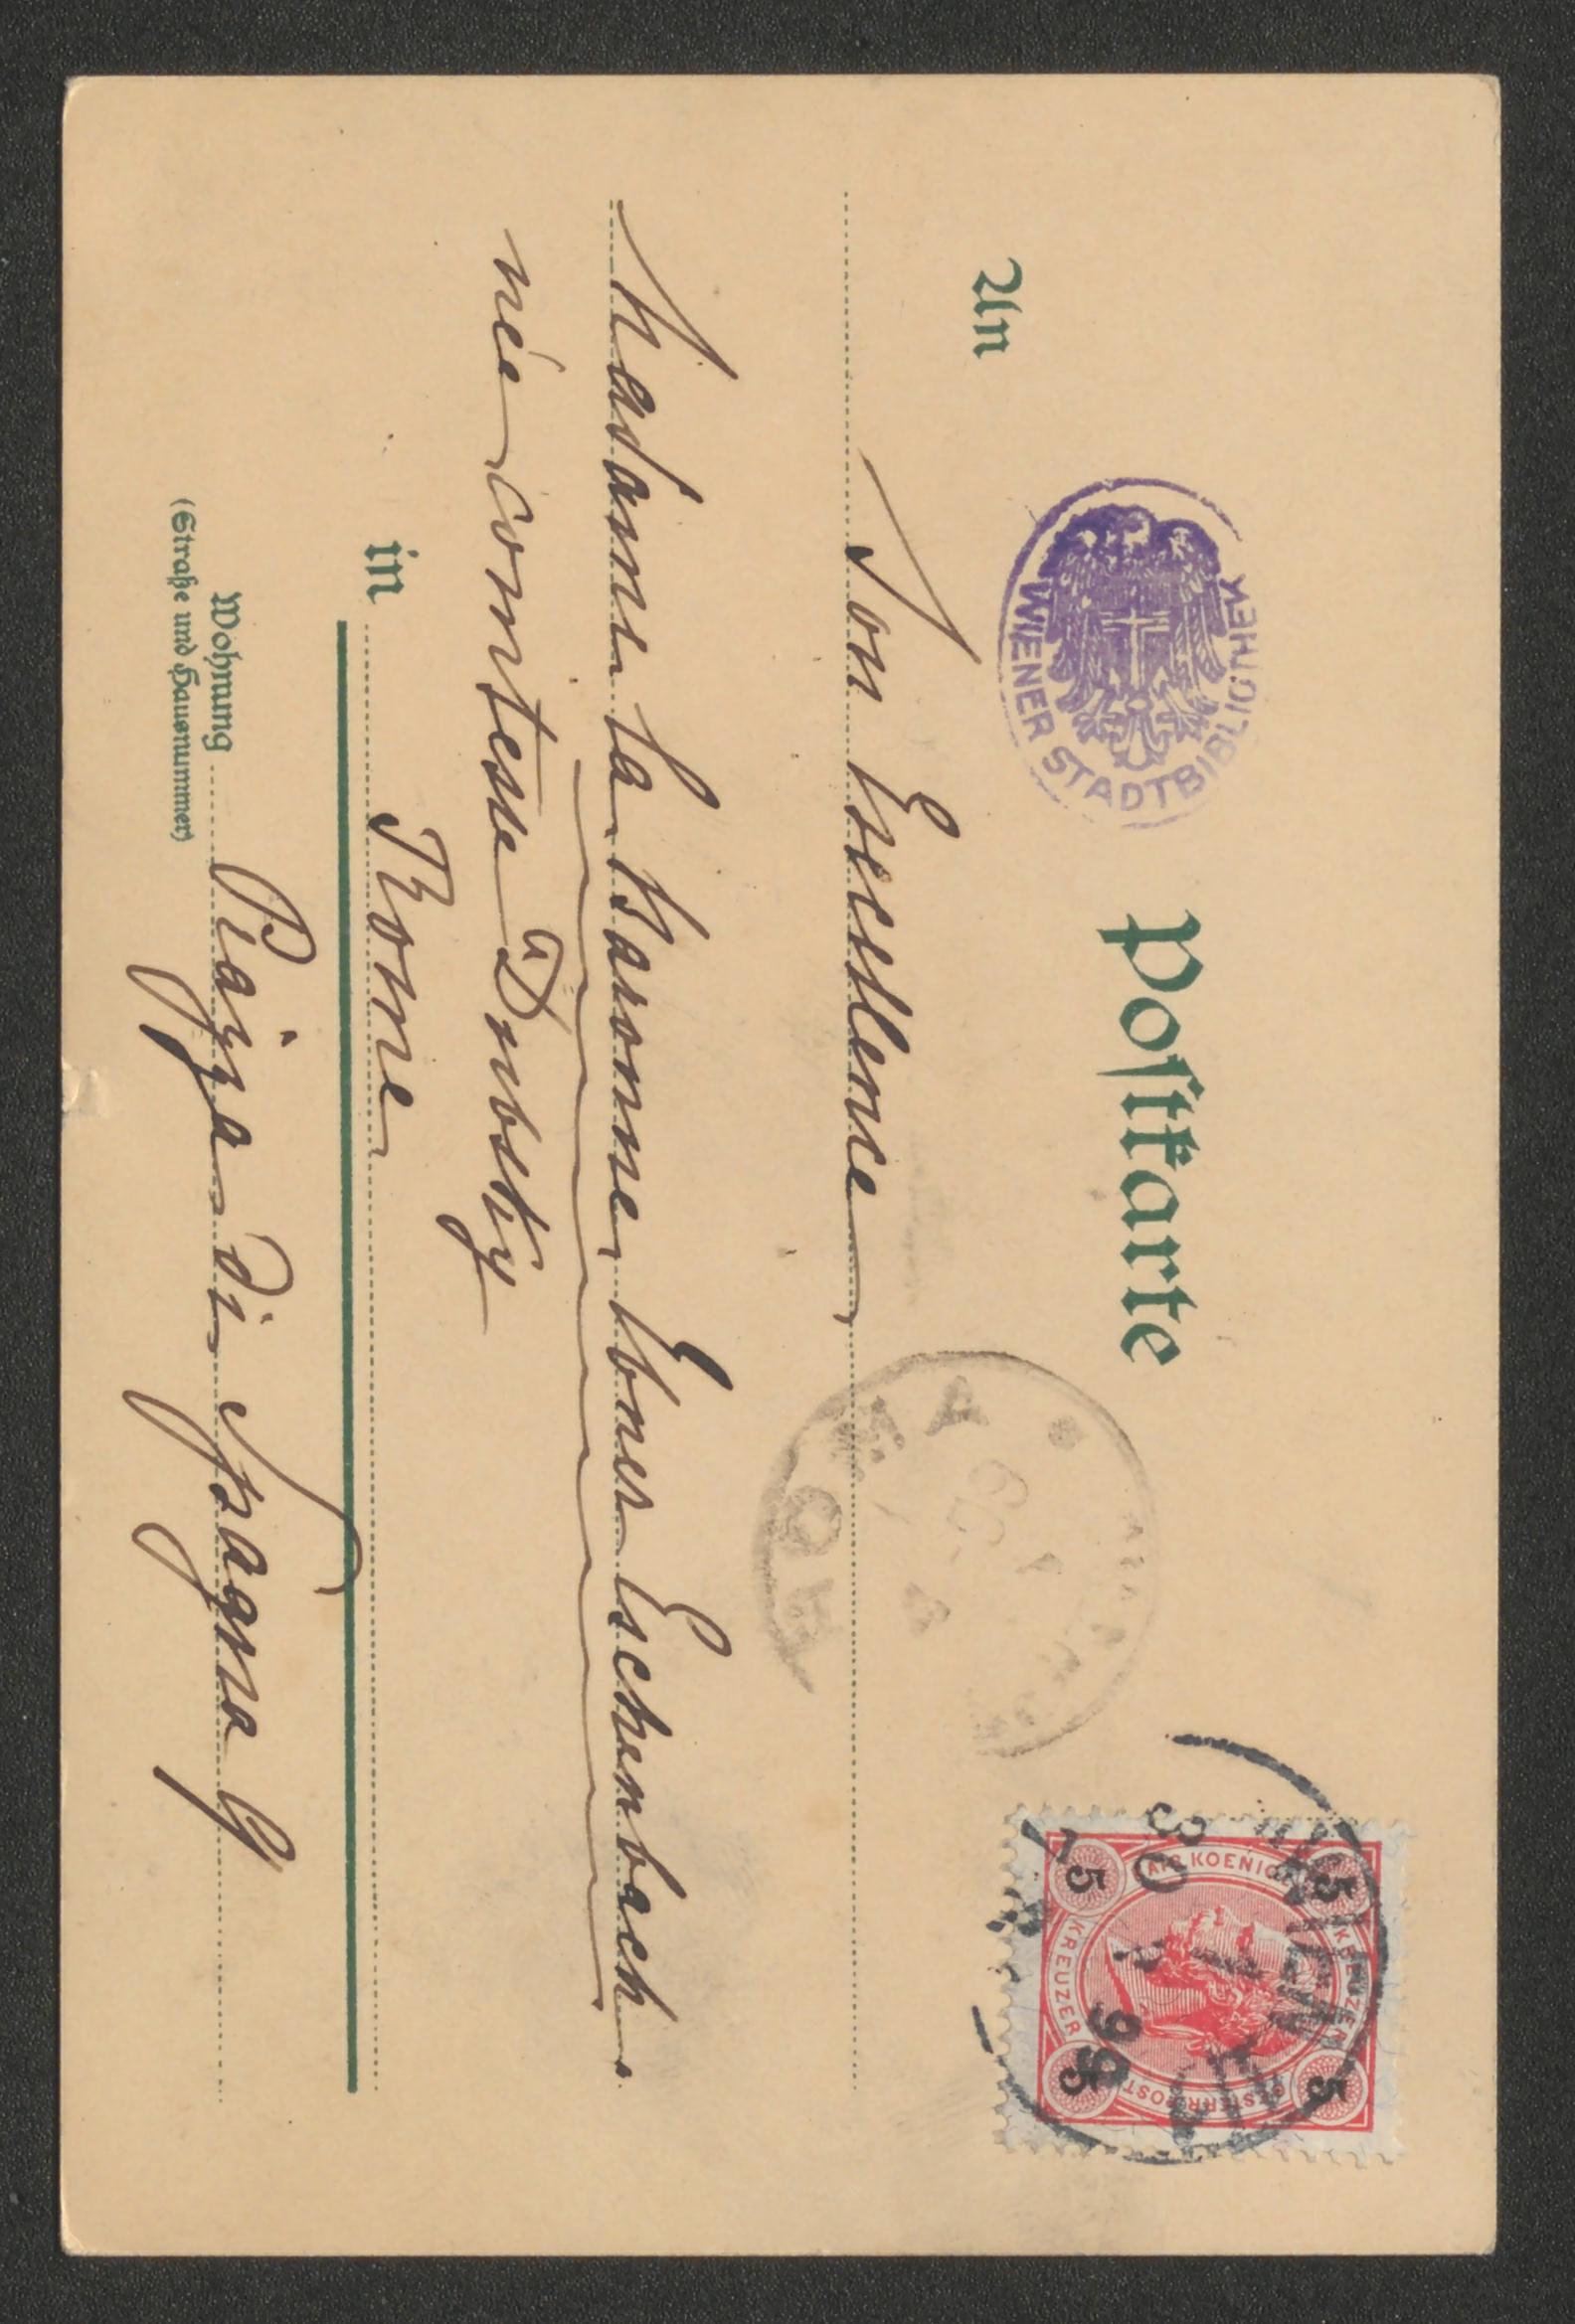 Postkarte
WIENER STADTBIBLIOTHEK
An
Son Excellence
Madame la Baronne Ebner Eschenbach.
née Comtesse Dubsky
in Rome
Wohnung Piazza di Spagna
(Straße und Hausnummer)
KREUZER
5 5 5 5
WIEN
30 1 99
ROMA